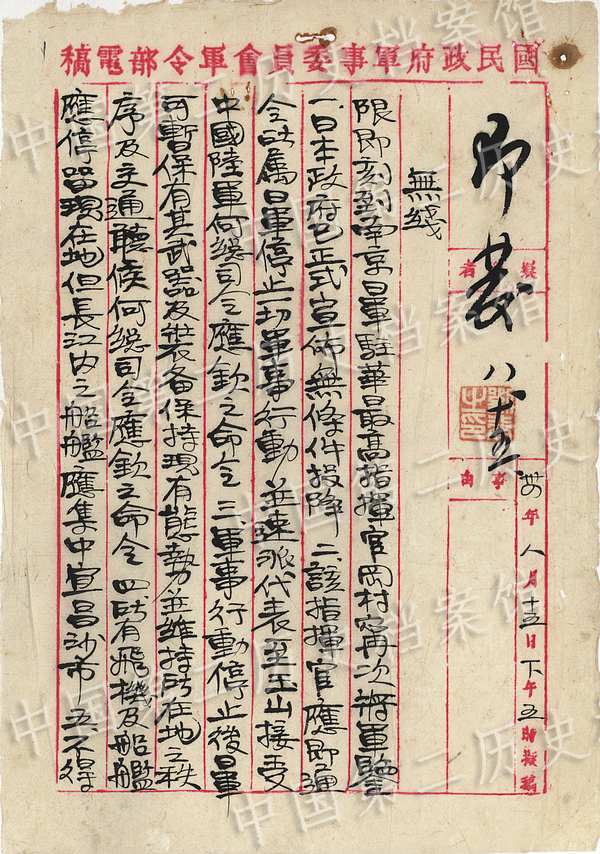 國民政府軍事委員會軍令部電稿
卅四年八月十五日下午五時擬稿
事由
即發 八、十五
無綫
限即刻到南京日軍駐華最高指揮官岡村寧次將軍鑒
一、日本政府已正式宣佈無條件投降 二該指揮官應即通
令所屬日軍停止一切軍事行動並速派代表至玉山接受
中國陸軍何總司令應欽之命令 三軍事行動停止後日軍
可暫保有其武器及裝备保持現有態勢並維持所在地之秩
序及交通聽候何總司令應欽之命令 四所有飛機及船艦
應停留現在地但長江內之船艦應集中宜昌沙市 五不得
中国第二历史档案馆